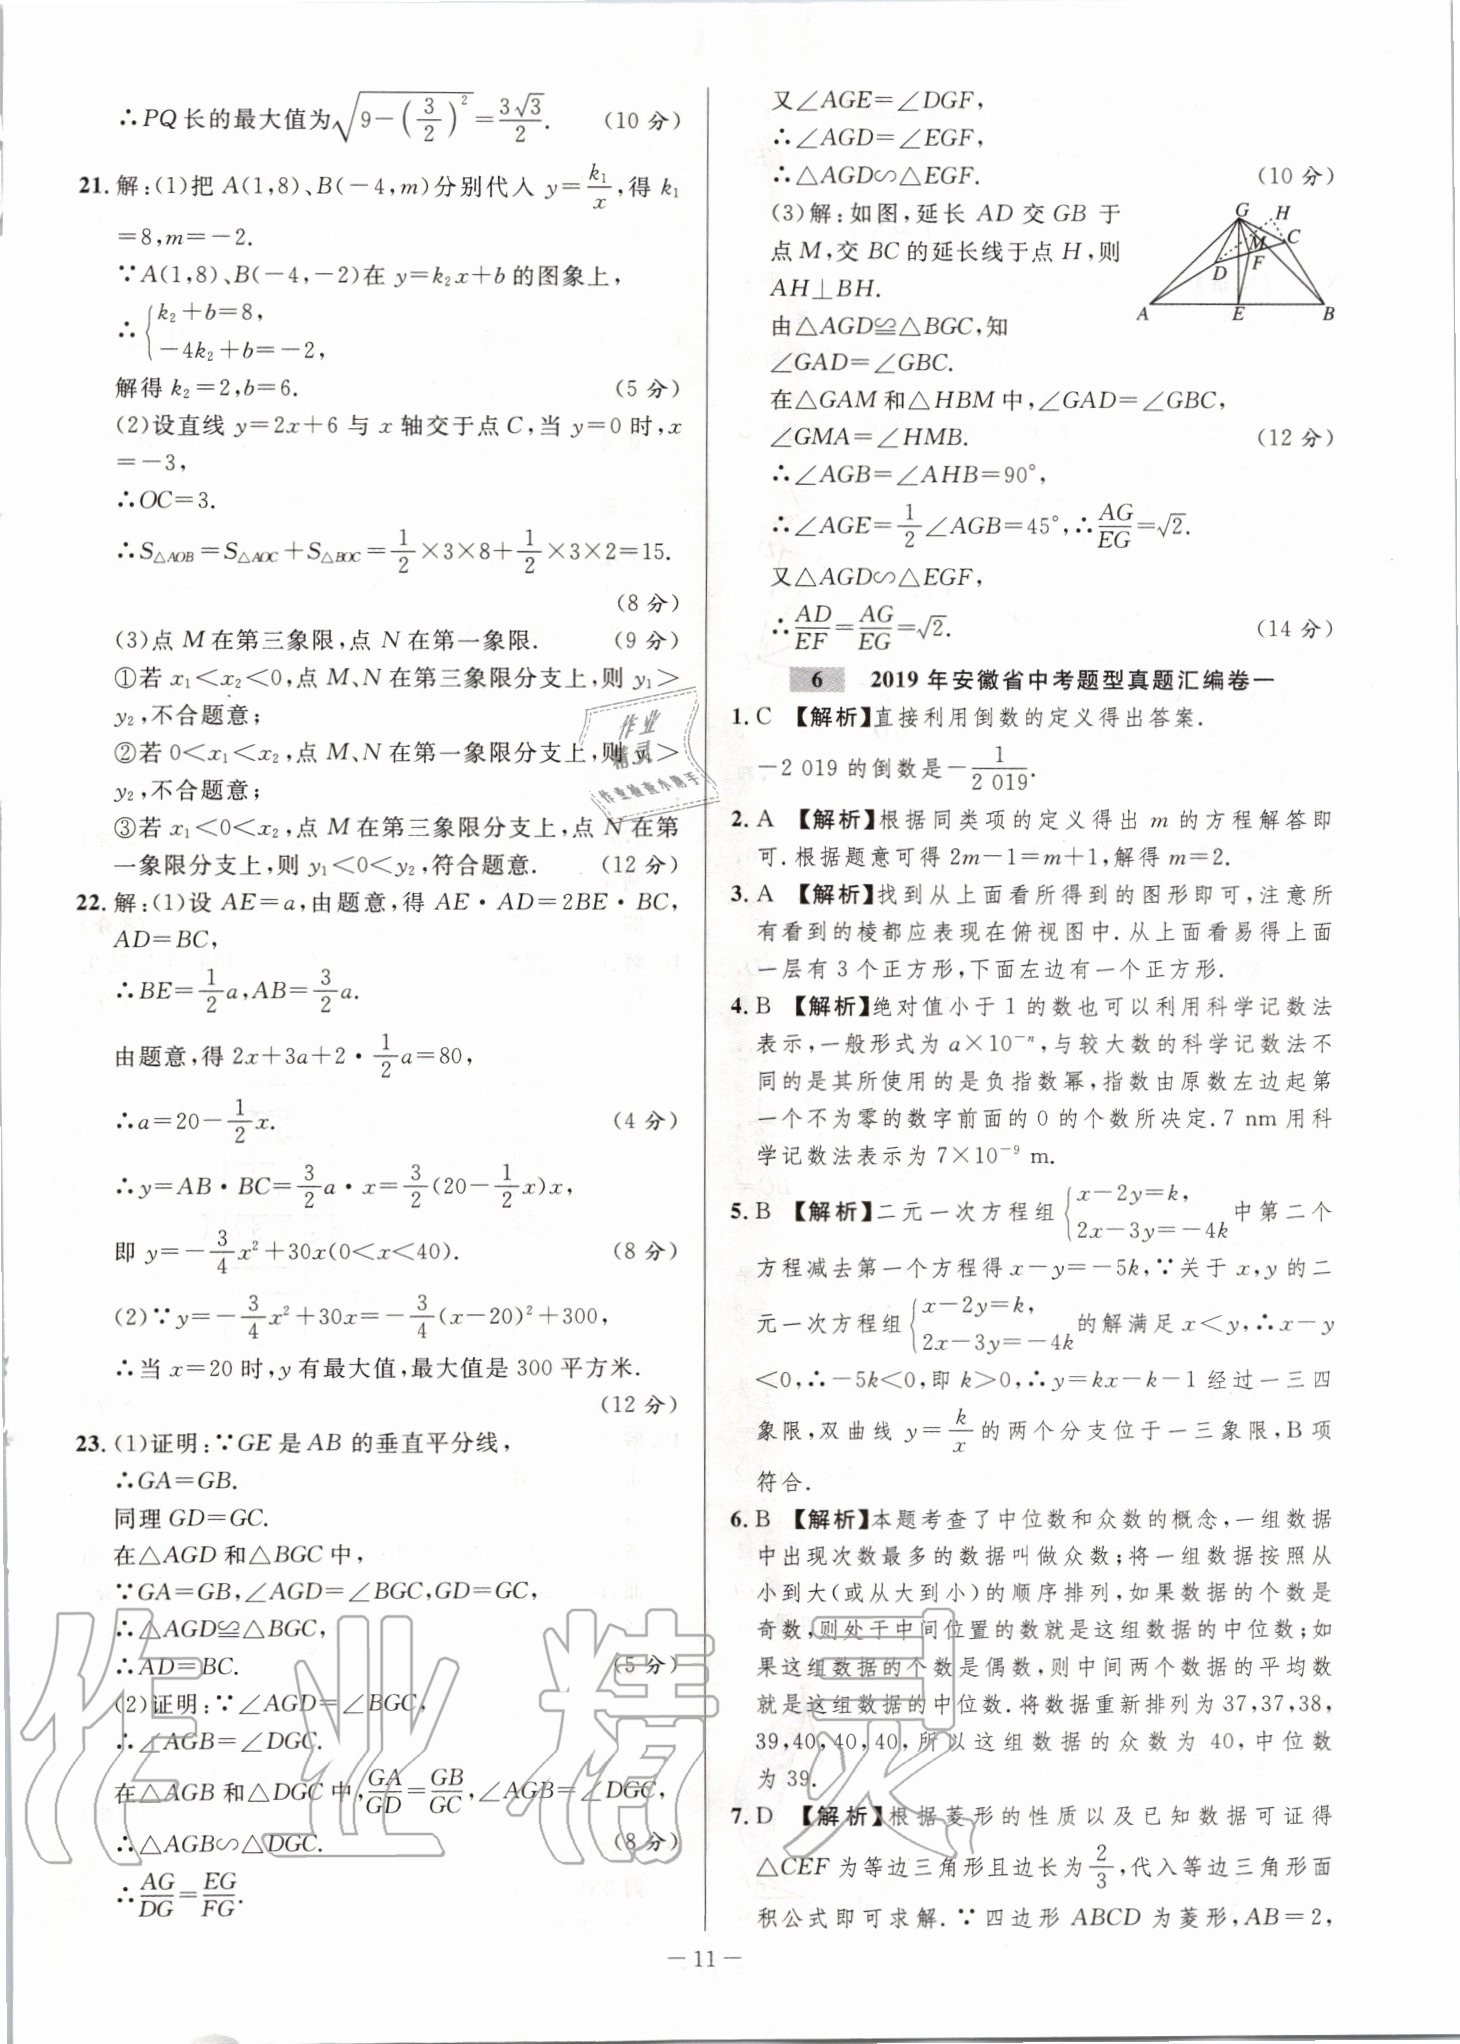 ∴PQ长的最大值为√(9-(3/2)²)=3√3/2. (10分)
21. 解:(1)把A(1,8)、B(-4,m)分别代入y=k₁/x,得k₁
=8,m=-2.
∵A(1,8)、B(-4,-2)在y=k₂x+b的图象上,
∴{k₂+b=8,
-4k₂+b=-2,
解得k₂=2,b=6. (5分)
(2)设直线y=2x+6与x轴交于点C,当y=0时,x
=-3,
∴OC=3.
∴S△AOB=S△AOC+S△BOC=1/2×3×8+1/2×3×2=15.
(8分)
(3)点M在第三象限,点N在第一象限. (9分)
①若x₁<x₂<0,点M、N在第三象限分支上,则y₁>
y₂,不合题意;
②若0<x₁<x₂,点M、N在第一象限分支上,则y₁>
y₂,不合题意;
③若x₁<0<x₂,点M在第三象限分支上,点N在第
一象限分支上,则y₁<0<y₂,符合题意. (12分)
22. 解:(1)设AE=a,由题意,得AE·AD=2BE·BC,
AD=BC,
∴BE=1/2a,AB=3/2a.
由题意,得2x+3a+2·1/2a=80,
∴a=20-1/2x. (4分)
∴y=AB·BC=3/2a·x=3/2(20-1/2x)x,
即y=-3/4x²+30x(0<x<40). (8分)
(2)∵y=-3/4x²+30x=-3/4(x-20)²+300,
∴当x=20时,y有最大值,最大值是300平方米.
(12分)
23. (1)证明:∵GE是AB的垂直平分线,
∴GA=GB.
同理GD=GC.
在△AGD和△BGC中,
∵GA=GB,∠AGD=∠BGC,GD=GC,
∴△AGD≌△BGC,
∴AD=BC. (5分)
(2)证明:∵∠AGD=∠BGC,
∴∠AGB=∠DGC.
在△AGB和△DGC中,GA/GD=GB/GC,∠AGB=∠DGC,
∴△AGB∽△DGC. (8分)
∴AG/DG=EG/FG.
又∠AGE=∠DGF,
∴∠AGD=∠EGF,
∴△AGD∽△EGF. (10分)
(3)解:如图,延长AD交GB于
点M,交BC的延长线于点H,则
AH⊥BH.
由△AGD≌△BGC,知
∠GAD=∠GBC.
G H M C D F A E B
在△GAM和△HBM中,∠GAD=∠GBC,
∠GMA=∠HMB. (12分)
∴∠AGB=∠AHB=90°,
∴∠AGE=1/2∠AGB=45°,∴AG/EG=√2.
又△AGD∽△EGF,
∴AD/EF=AG/EG=√2. (14分)
6 2019年安徽省中考题型真题汇编卷一
1. C 【解析】直接利用倒数的定义得出答案.
-2 019的倒数是-1/2 019.
2. A 【解析】根据同类项的定义得出m的方程解答即
可.根据题意可得2m-1=m+1,解得m=2.
3. A 【解析】找到从上面看所得到的图形即可,注意所
有看到的棱都应表现在俯视图中.从上面看易得上面
一层有3个正方形,下面左边有一个正方形.
4. B 【解析】绝对值小于1的数也可以利用科学记数法
表示,一般形式为a×10⁻ⁿ,与较大数的科学记数法不
同的是其所使用的是负指数幂,指数由原数左边起第
一个不为零的数字前面的0的个数所决定.7 nm用科
学记数法表示为7×10⁻⁹ m.
5. B 【解析】二元一次方程组{x-2y=k, 2x-3y=-4k中第二个
方程减去第一个方程得x-y=-5k,∵关于x,y的二
元一次方程组{x-2y=k, 2x-3y=-4k的解满足x<y,∴x-y
<0,∴-5k<0,即k>0,∴y=kx-k-1经过一三四
象限,双曲线y=k/x的两个分支位于一三象限,B项
符合.
6. B 【解析】本题考查了中位数和众数的概念,一组数据
中出现次数最多的数据叫做众数;将一组数据按照从
小到大(或从大到小)的顺序排列,如果数据的个数是
奇数,则处于中间位置的数就是这组数据的中位数;如
果这组数据的个数是偶数,则中间两个数据的平均数
就是这组数据的中位数.将数据重新排列为37,37,38,
39,40,40,40,所以这组数据的众数为40,中位数
为39.
7. D 【解析】根据菱形的性质以及已知数据可证得
△CEF为等边三角形且边长为2/3,代入等边三角形面
积公式即可求解.∵四边形ABCD为菱形,AB=2,
— 11 —
作业
精灵
作业检查小助手
作业精灵